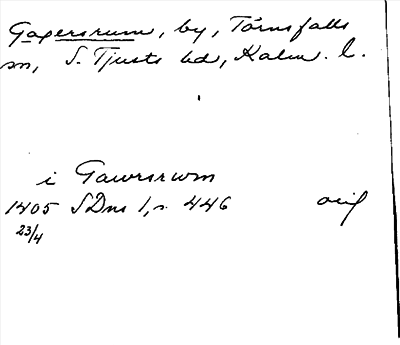 Gagersrum, by, Törnsfalls
sn, S. Tjusts hd, Kalm. l.
i Gawrsrwm
1405 SDns 1, s. 446 orig
23/4